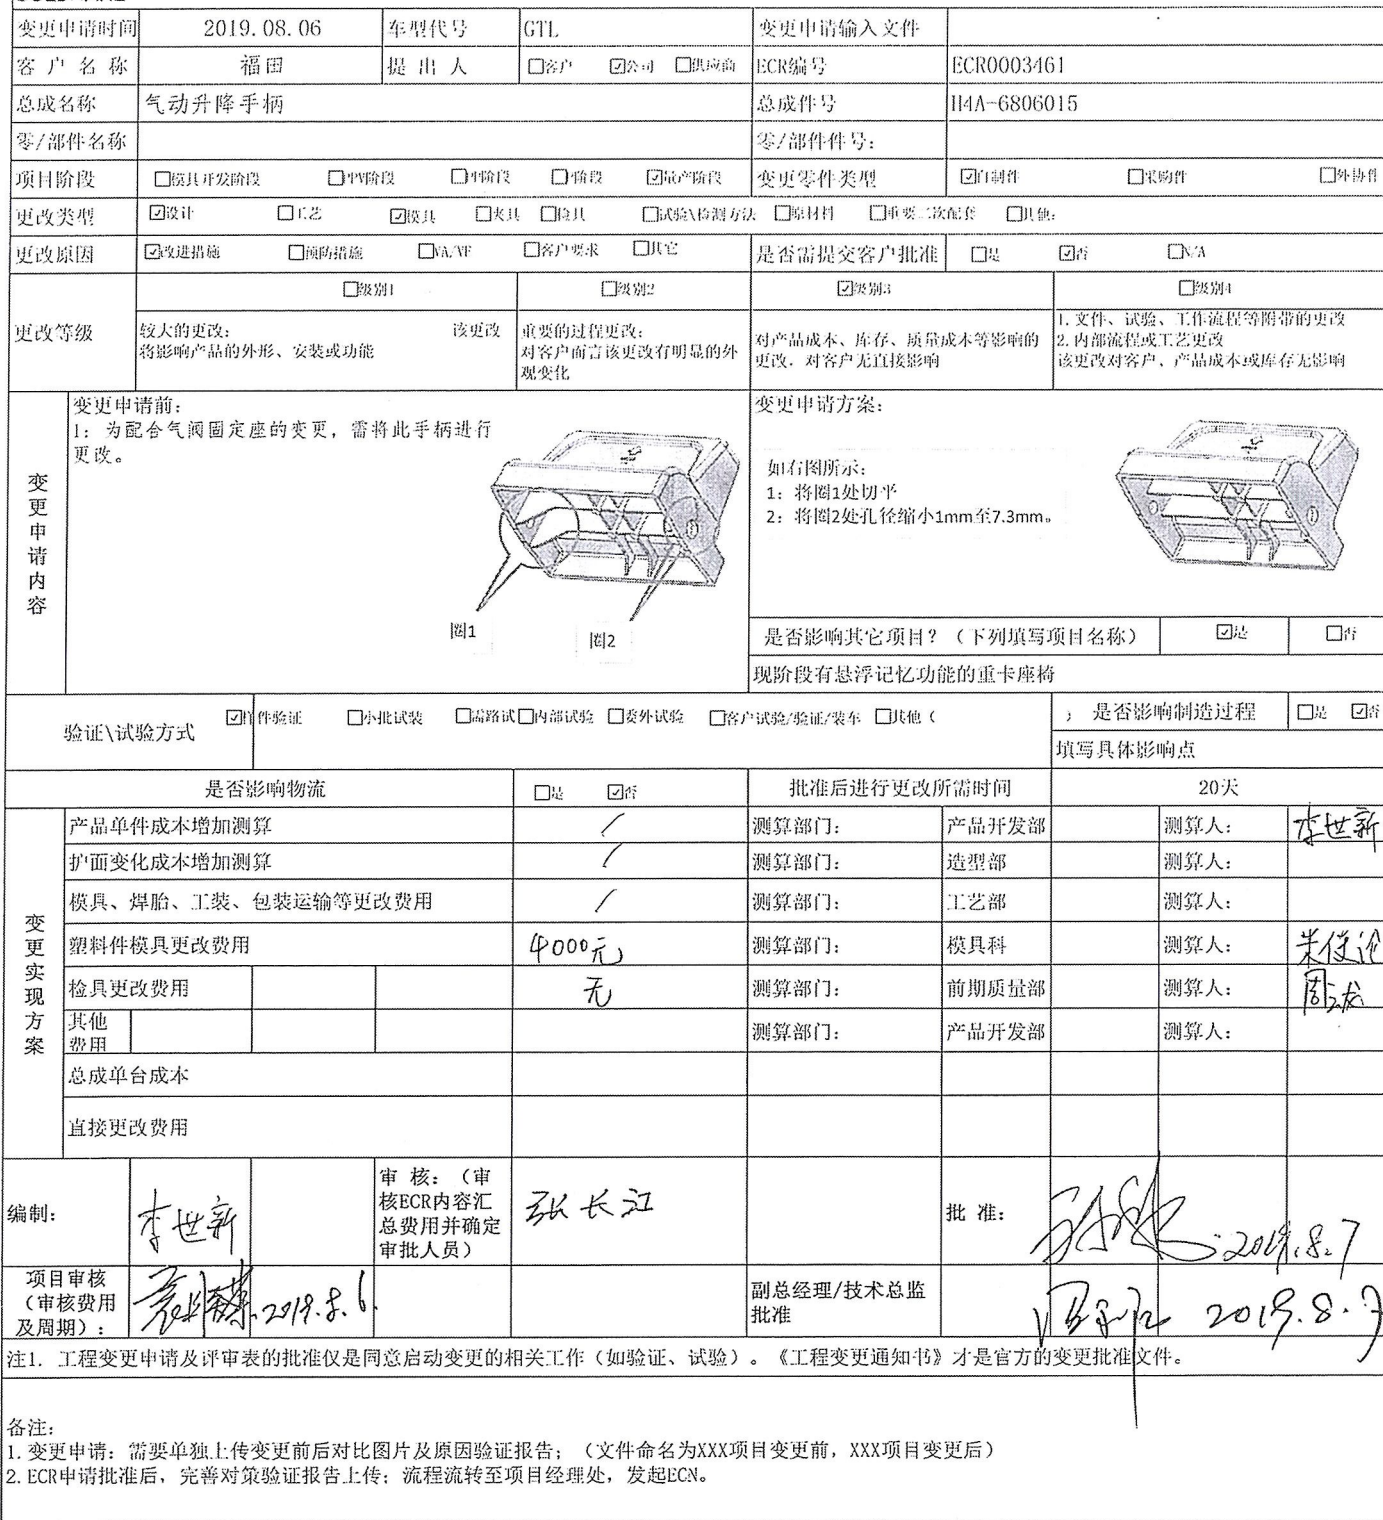 变更申请时间 2019.08.06 车型代号 GTL 变更申请输入文件
客户名称 福田 提出人 □客户 ☑公司 □供应商 ECR编号 ECR0003461
总成名称 气动升降手柄 总成件号 H4A-6806015
零/部件名称 零/部件件号:
项目阶段 □模具开发阶段 □PPV阶段 □PP阶段 □P阶段 ☑量产阶段 变更零件类型 ☑自制件 □采购件 □外协件
更改类型 ☑设计 □工艺 ☑模具 □夹具 □检具 □试验\检测方法 □原材料 □重要二次配套 □其他:
更改原因 ☑改进措施 □预防措施 □VA/VE □客户要求 □其它 是否需提交客户批准 □是 ☑否 □N/A
更改等级 □级别1 □级别2 ☑级别3 □级别4
较大的更改: 该更改
将影响产品的外形、安装或功能
重要的过程更改:
对客户而言该更改有明显的外
观变化
对产品成本、库存、质量成本等影响的
更改，对客户无直接影响
1.文件、试验、工作流程等附带的更改
2.内部流程或工艺更改
该更改对客户、产品成本或库存无影响
变更申请内容
变更申请前:
1: 为配合气阀固定座的变更，需将此手柄进行
更改。
圈1
圈2
变更申请方案:
如右图所示:
1: 将圈1处切平
2: 将圈2处孔径缩小1mm至7.3mm。
是否影响其它项目？（下列填写项目名称） ☑是 □否
现阶段有悬浮记忆功能的重卡座椅
验证\试验方式 ☑样件验证 □小批试装 □需路试 □内部试验 □委外试验 □客户试验/验证/装车 □其他（ ） 是否影响制造过程 □是 ☑否
填写具体影响点
是否影响物流 □是 ☑否 批准后进行更改所需时间 20天
变更实现方案
产品单件成本增加测算 / 测算部门: 产品开发部 测算人: 李世新
护面变化成本增加测算 / 测算部门: 造型部 测算人:
模具、焊胎、工装、包装运输等更改费用 / 测算部门: 工艺部 测算人:
塑料件模具更改费用 4000元 测算部门: 模具科 测算人:
检具更改费用 无 测算部门: 前期质量部 测算人:
其他费用 测算部门: 产品开发部 测算人:
总成单台成本
直接更改费用
编制: 李世新 审 核:（审核ECR内容汇总费用并确定审批人员） 张长江 批 准: 2019.8.7
项目审核（审核费用及周期）: 2019.8.6. 副总经理/技术总监批准 2019.8.7
注1. 工程变更申请及评审表的批准仅是同意启动变更的相关工作（如验证、试验）。《工程变更通知书》才是官方的变更批准文件。
备注:
1.变更申请: 需要单独上传变更前后对比图片及原因验证报告;（文件命名为XXX项目变更前，XXX项目变更后）
2.ECR申请批准后，完善对策验证报告上传; 流程流转至项目经理处，发起ECN。